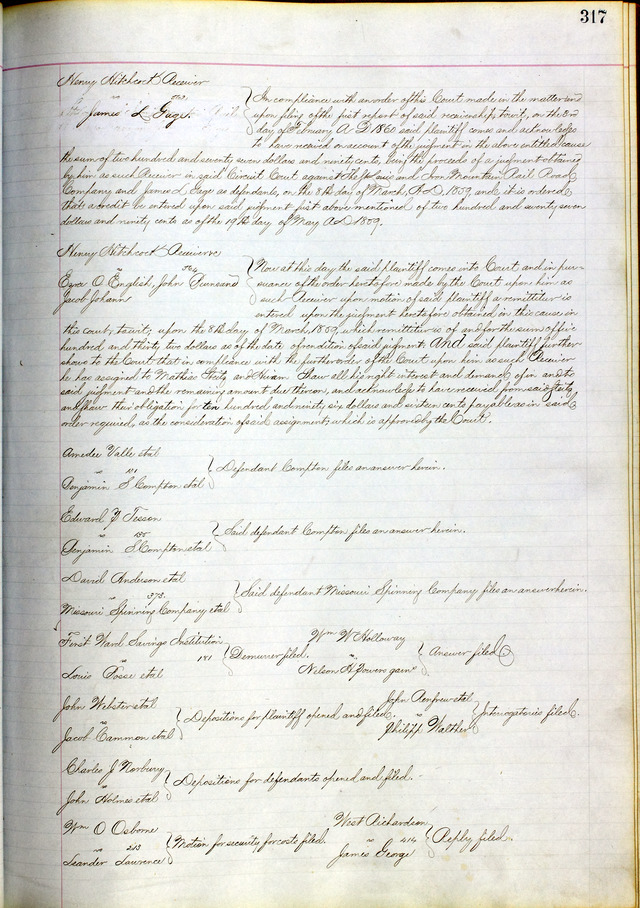 317
Henry Hitchcock Receiver
vs
James L Gage.
In compliance with an order of this Court made in the matter and
upon filing of the first report of said receivership towit, on the 3rd
day of February A D 1860 said plaintiff comes and acknowledges
to have received on account of the judgment in the above entitled cause
the sum of two hundred and seventy seven dollars and ninety cents, being the proceeds of a judgment obtained
by him as such Receiver in said Circuit Court against the St Louis and Iron Mountain Rail Road
Company and James L Gage as defendants, on the 8th day of March, A.D. 1859 and it is ordered
that a credit be entered upon said judgment first above mentioned of two hundred and seventy seven
dollars and ninety cents as of the 19th day of May A.D 1859.
Henry Hitchcock Receiver
vs
Ezra O English, John
Jacob Johann
Now at this day the said plaintiff comes into Court and in pur-
suance of the order heretofore made by the Court upon him as
such Receiver upon motion of said plaintiff a remittetur is
entered upon the judgment heretofore obtained in this cause in
this court, towit, upon the 8th day of March, 1859, which remittetur is of and for the sum of five
hundred and thirty two dollars as of the date of rendition of said judgment. And said plaintiff further
shows to the Court that in compliance with the further order of the Court upon him as such Receiver
he has assigned to Mathias Steitz and Hiram Shaw all his right interest and demand of in and to
said judgment and the remaining amount due thereon, and acknowledges to have received from said Steitz
and Shaw their obligation for ten hundred and ninety six dollars and sixteen cents payable as in said
order required, as the consideration of said assignment which is approved by the Court.
Amedee Valle etal
vs 131
Benjamin S Compton etal
Defendant Compton files an answer herein.
Edward Y Tesson
vs 135
Benjamin S Compton etal
Said defendant Compton files an answer herein.
David Anderson etal
vs 373.
Missouri Spinning Company etal
Said defendant Missouri Spinning Company files an answer herein.
First Ward Savings Institution
vs 181
Louis Posse etal
Demurrer filed.
Wm W Holloway
vs
Nelson H Powers garne
Answer filed
John Webster etal
vs
Jacob Cammon etal
Depositions for plaintiff opened and filed.
John Renfrew etal
vs
Philipp Walther
Interrogatories filed.
Charles J Norbury
vs
John Holmes etal
Depositions for defendants opened and filed.
Wm O Osborne
vs 213
Leander Lawrence
Motion for security for costs filed.
West Richardson
vs 414
James George
Reply filed.